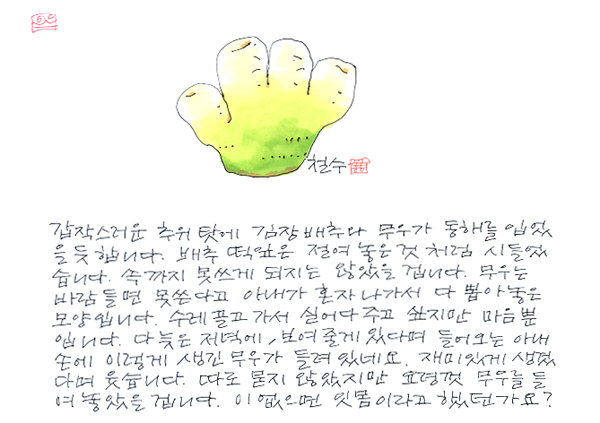 철수
갑작스러운 추위 탓에 김장 배추와 무우가 동해를 입었
을 듯 합니다. 배추 떡잎은 절여 놓은 것 처럼 시들었
습니다. 속까지 못쓰게 되지는 않았을 겁니다. 무우는
바람 들면 못쓴다고 아내가 혼자 나가서 다 뽑아 놓은
모양입니다. 수레 끌고 가서 실어다 주고 싶지만 마음 뿐
입니다. 다 늦은 저녁에, 보여 줄게 있다며 들어오는 아내
손에 이렇게 생긴 무우가 들려 있네요. 재미있게 생겼
다며 웃습니다. 따로 묻지 않았지만 요령껏 무우를 들
여 놓았을 겁니다. 이 없으면 잇몸이라고 했던가요?